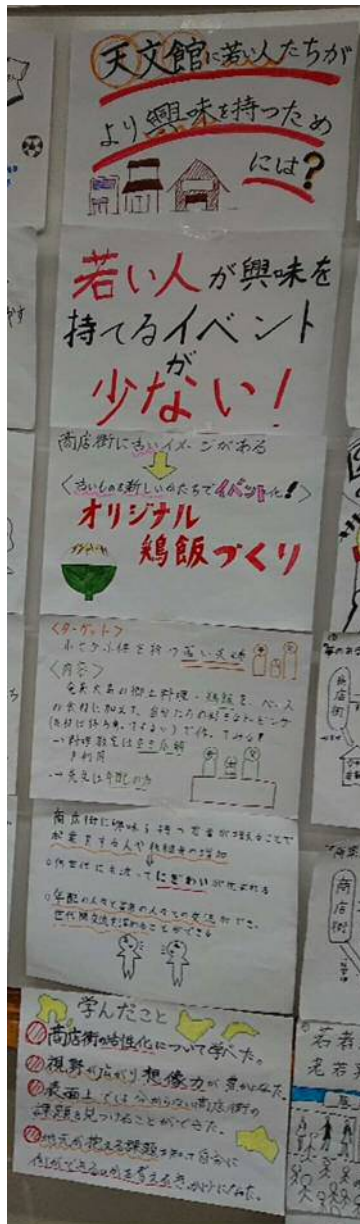 天文館に若い人たちが
より興味を持つため
には?
若い人が興味を
持てるイベント
が
少ない!
商店街に古いイメージがある
〈古いものを新しいかたちでイベント化!〉
オリジナル
鶏飯づくり
〈ターゲット〉
小さな子供を持つ若い夫婦
〈内容〉
奄美大島の郷土料理・鶏飯を、ベース
の食材に加えて、自分たちの好きなトッピング
→料理教室は空き店舗
を利用
→先生は年配の方
商店街に興味を持つ若者が増えることで
起業をする人や後継者の増加
○何世代にも渡ってにぎわいが生まれる
○年配の人々と若者の人々との交流ができ、
世代間交流を深めることができる
学んだこと
商店街の活性化について学べた。
視野が広がり想像力が豊かになった。
表面上では分からない商店街の
課題を見つけることができた。
地元が抱える課題を知って自分に
何ができるのかを考えるきっかけになった。
商店街
商店街
若者
老若男